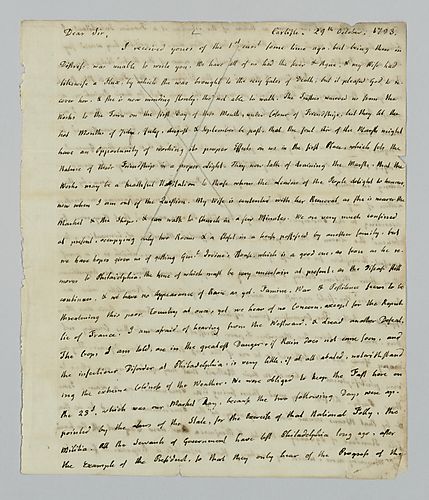 Dear Sir, Carlisle. 29th October, 1793.
I received yours of the 1st inst. some time ago, but being then in
Distress, was unable to write you. We have all of us had the fever & Ague, & my Wife had
likewise a Flux, by which she was brought to the very Gates of Death, but it pleased God to re-
cover her, & she is now mending slowly, tho not able to walk. The Trustees moved us from the
Works to the Town on the first day of this Month, under Colour of Friendship, but they let the
hot Months of July, August & September be past, that the foul Air of the Marsh might
have an Opportunity of working its proper Effects on us in the first Place, which puts the
Nature of their Friendship in a proper Light. They now talk of draining the Marsh, that the
Works may be a healthful Habitation to those whom the Leaders of the People delight to honour
now when I am out of the Question. My Wife is contented with her Removal as she is nearer the
Market & the Shops, & can walk to Church in a few Minutes. We are very much confined
at present, occupying only two Rooms & a Closet in a house possessed by another family, but
we have hopes given us of getting Genl. Irvine's House, which is a good one, as soon as he re-
moves to Philadelphia, the time of which must be very uncertain at present, as the Disease still
continues, & we have no Appearance of Rain as yet. Famine, War & Pestilence seem to be
threatening this poor Country at once, yet we hear of no Concern, except for the Repub-
lic of France. I am afraid of hearing from the Westward, & dread another Defeat.
The Crops I am told, are in the greatest Danger, if Rain does not come soon, and
the infectious Disorder at Philadelphia is very little, if at all abated, notwithstand-
ing the extreme Coldness of the Weather. We were obliged to keep the Fast here on
the 23d, which was our Market Day, because the two following Days were ap-
pointed by the Laws of the State, for the Exercise of that National Folly, the
Militia. All the Servants of Government have left Philadelphia long ago, after
the Example of the President, so that they only hear of the Progress of the